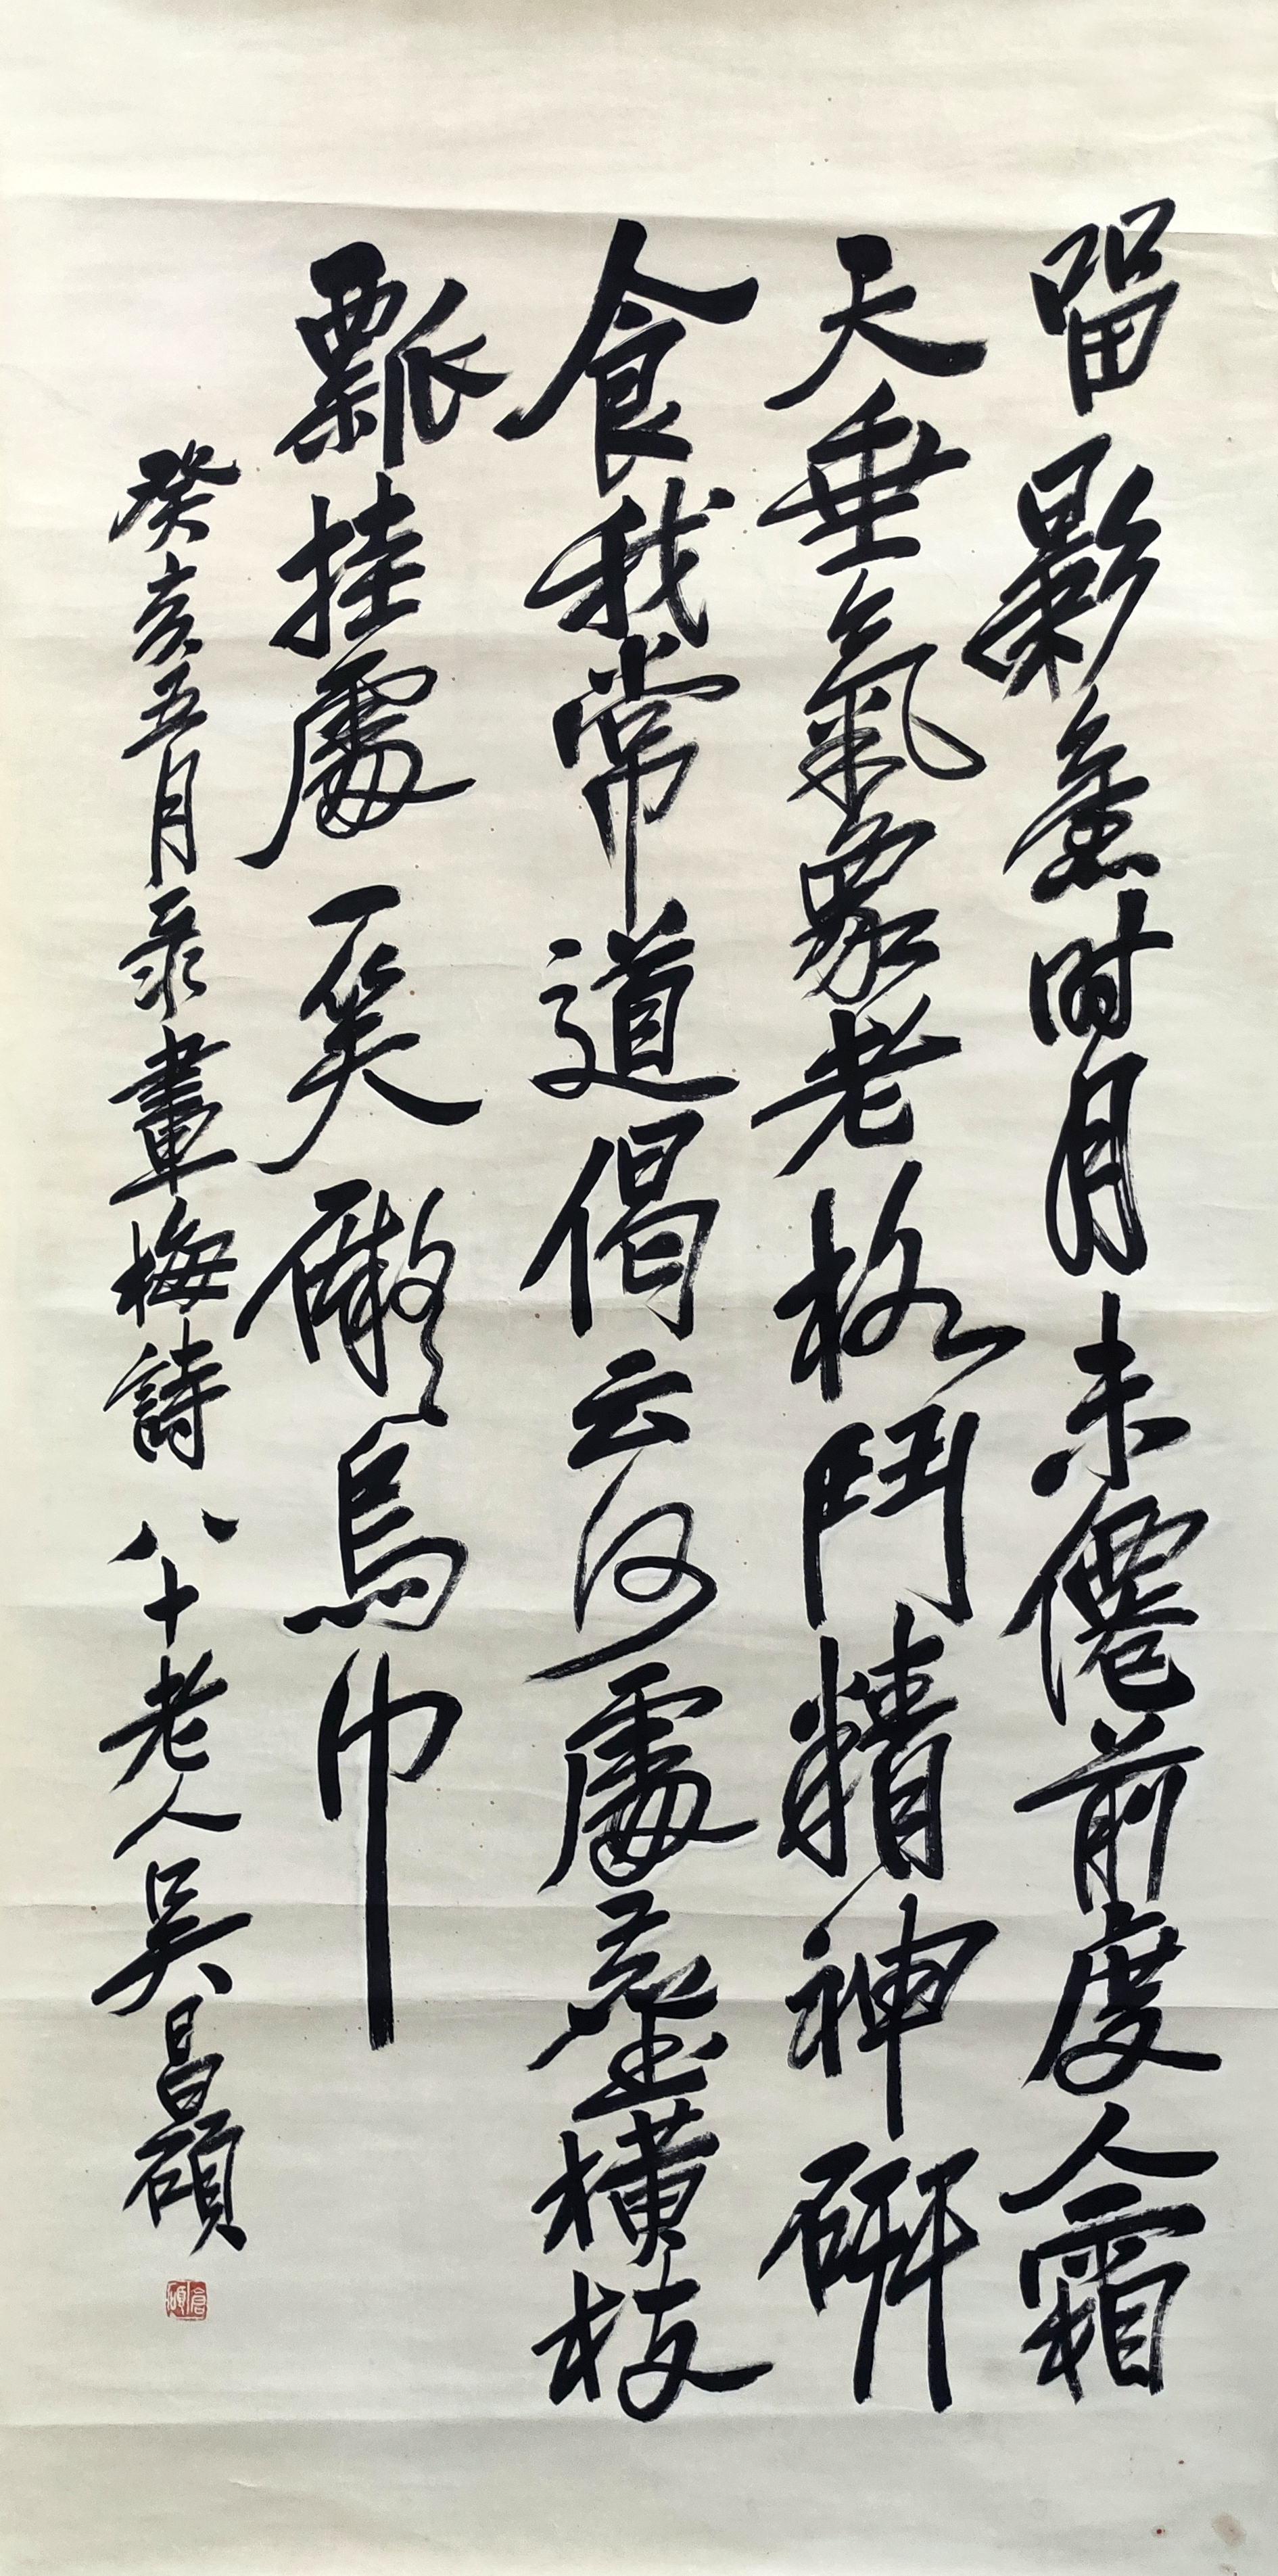 留影時月未僊前度人霜
天垂氣象老格鬥精神研
食我常道偈云何處塵橫枝
瓢挂處一笑礙烏巾
癸亥五月录畫梅詩八十老人吳昌碩
倉碩